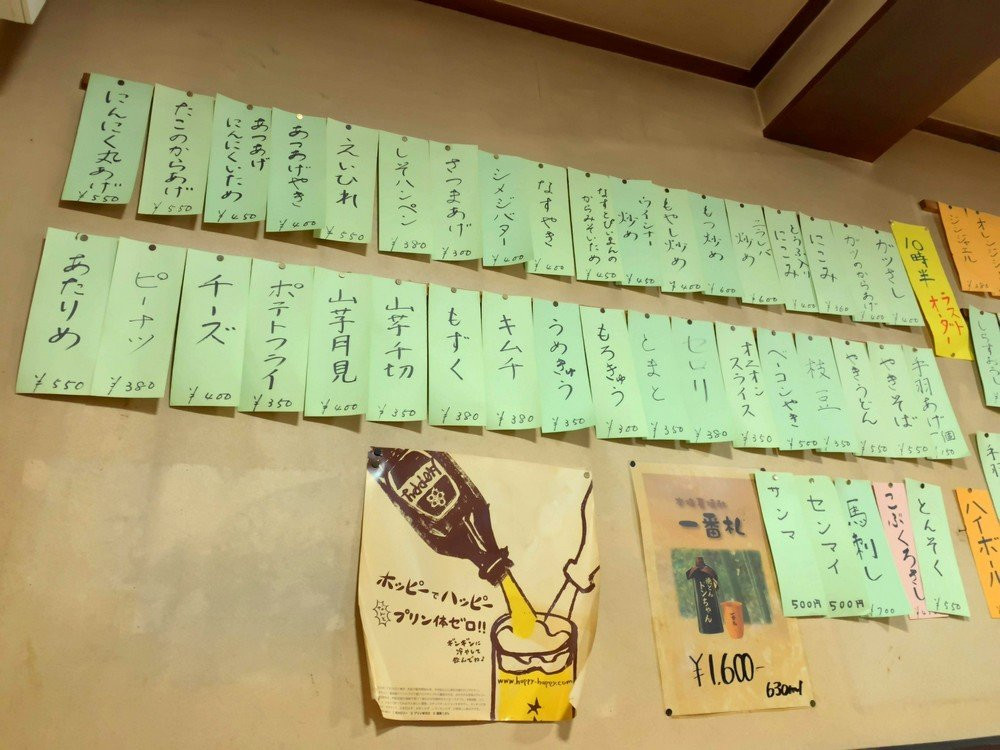 にんにく丸あげ
¥550
たこのからあげ
¥550
あつあげ
にんにくいため
¥450
あつあげやき
¥400
えいひれ
¥550
しそハンペン
¥380
さつまあげ
¥300
シメジバター
¥400
なすやき
¥400
なすとぴーまんの
からみそいため
¥450
ウインナー
炒め
¥450
もやし炒め
¥400
もつ炒め
¥500
炒め
¥600
とうふ入り
にこみ
¥400
にこみ
¥400
ガツのからあげ
¥400
ガツさし
¥400
10時半
ラスト
オーダー
あたりめ
¥550
ピーナツ
¥380
チーズ
¥400
ポテトフライ
¥350
山芋月見
¥400
山芋千切
¥350
もずく
¥380
キムチ
¥380
うめきゅう
¥350
もろきゅう
¥300
とまと
¥350
セロリ
¥380
オニオン
スライス
¥350
ベーコンやき
¥500
枝豆
¥350
やきうどん
¥550
やきそば
¥550
手羽あげ一個
150
サンマ
500円
センマイ
500円
馬刺し
¥700
こぶくろさし
とんそく
¥550
ハイボール
Hoppy
ホッピーでハッピー
プリン体ゼロ!!
ギンギンに
冷やして
飲んでね♪
www.hoppy-happy.com
一番札
トンちゃん
¥1.600-
630ml